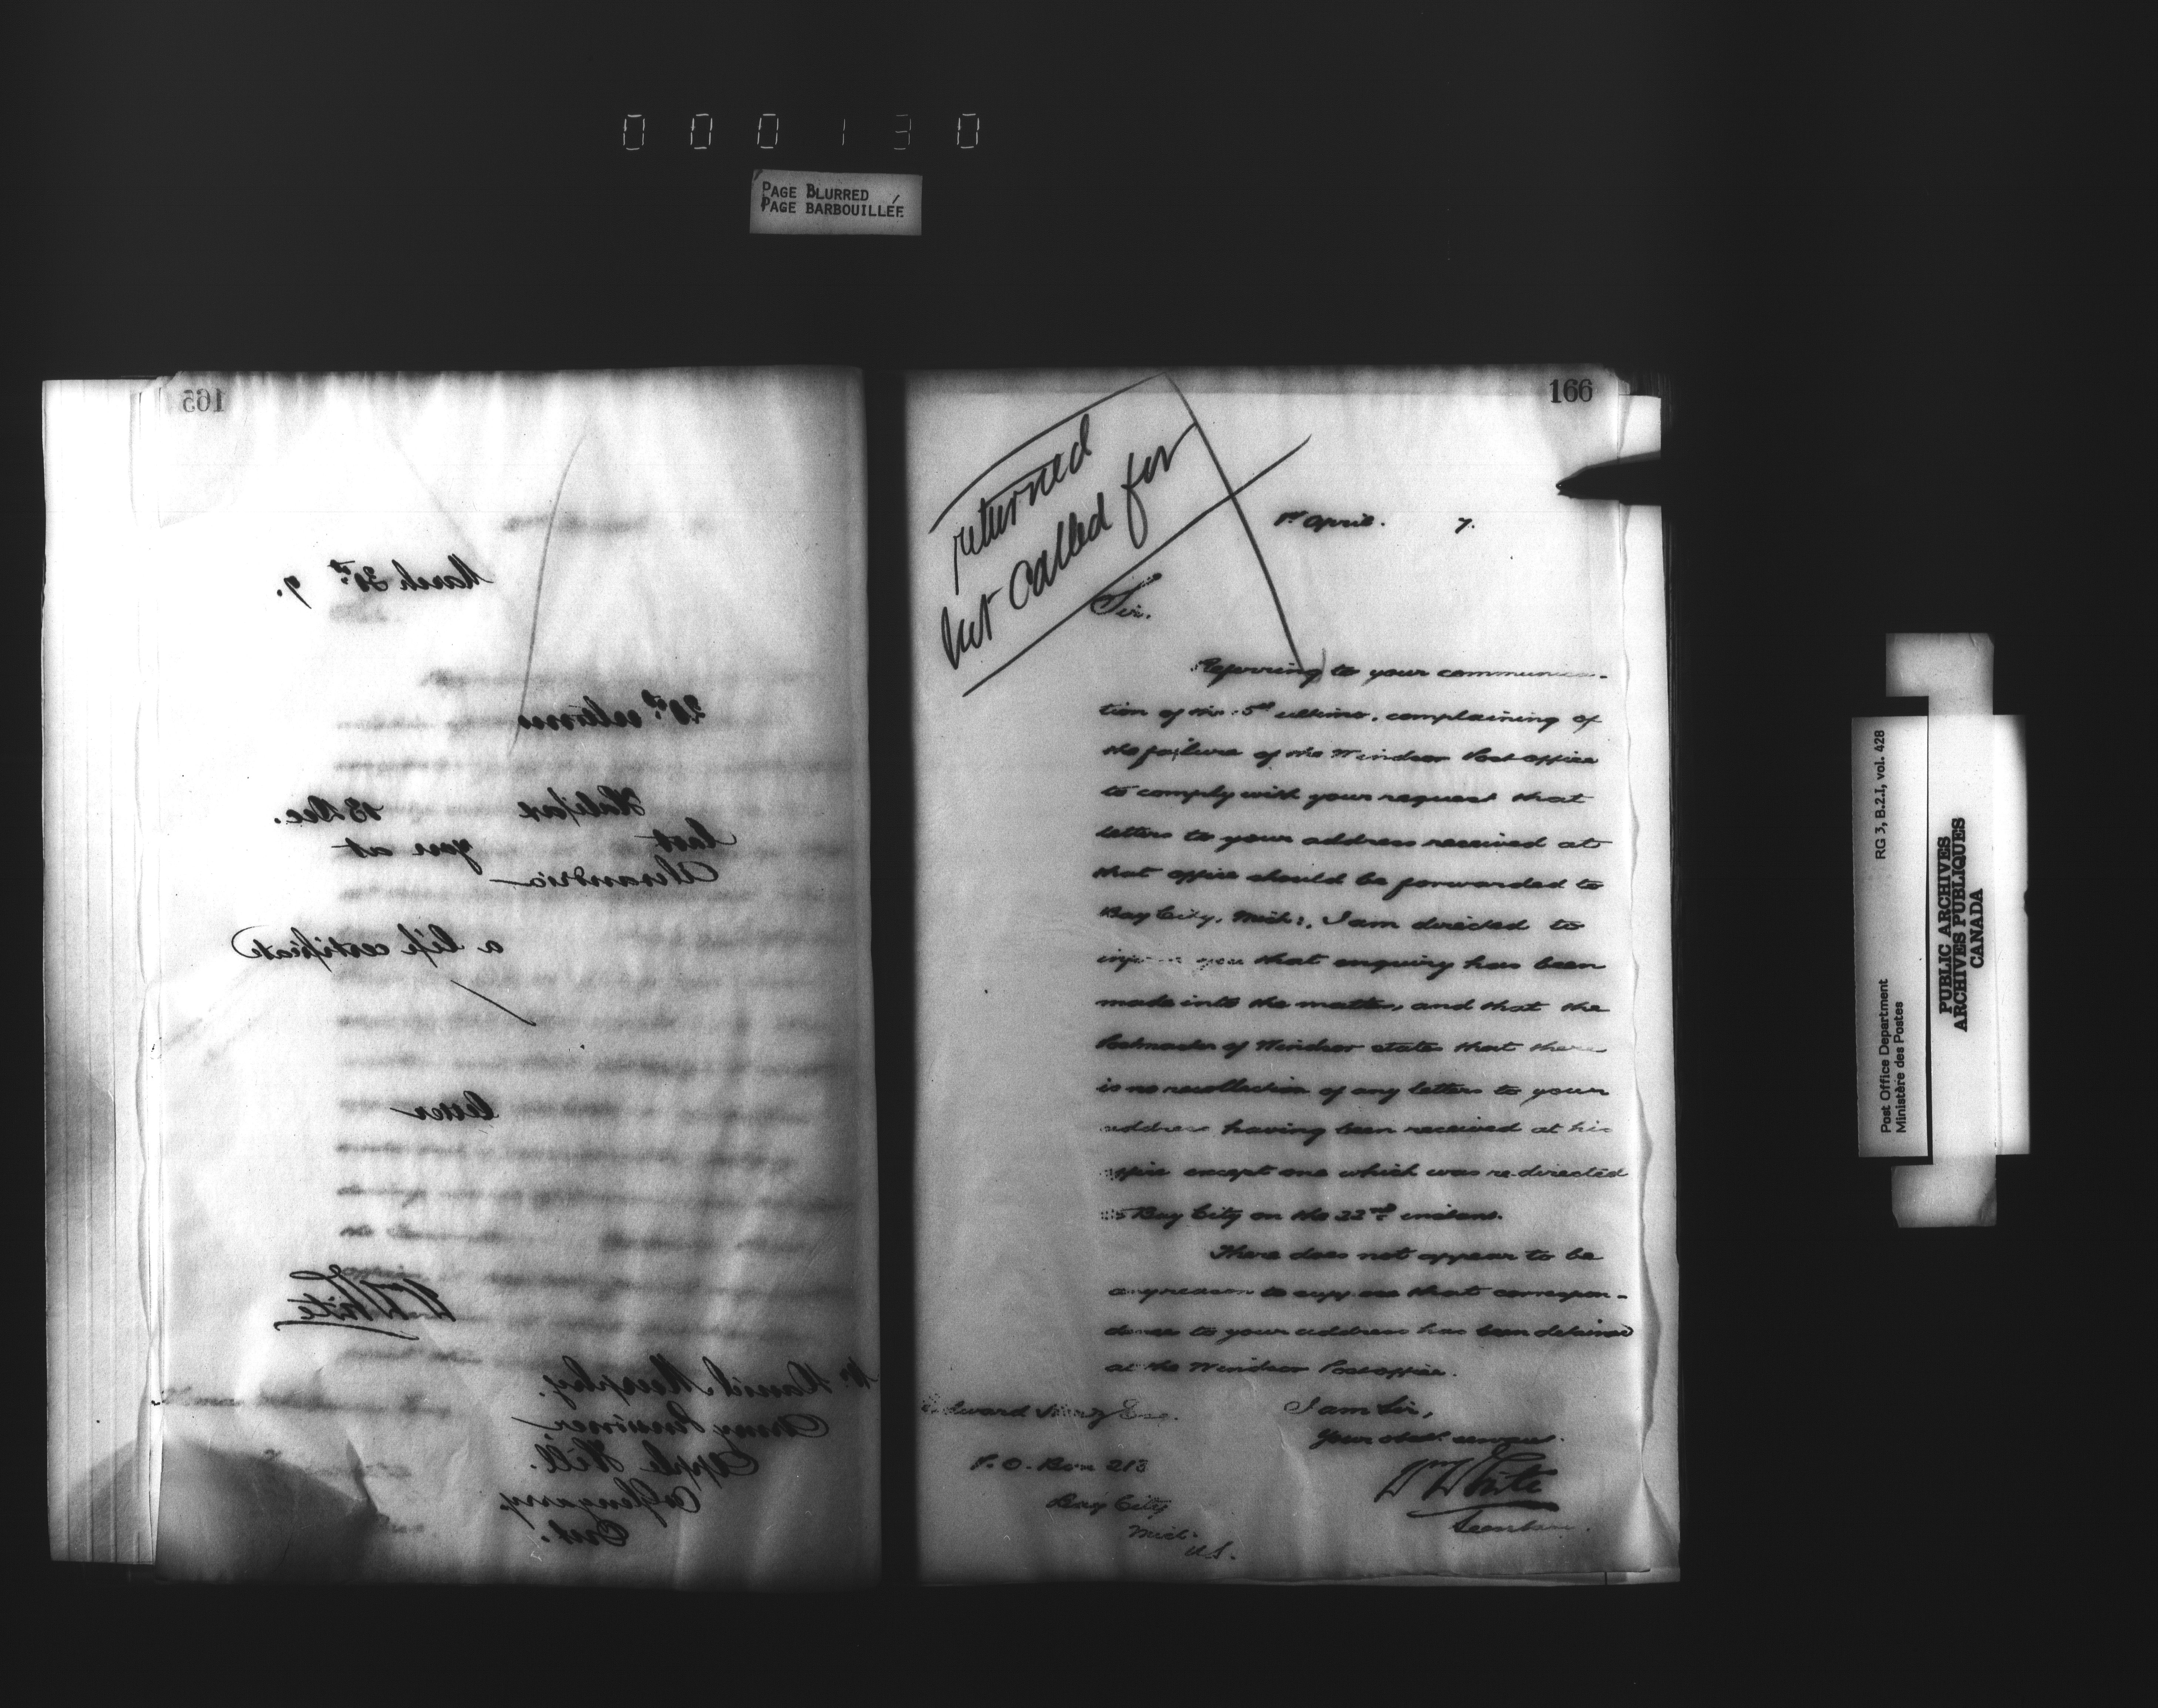 000130
PAGE BLURRED
PAGE BARBOUILLÉE
165
March 31st 7.
ultimo
Halifax 13 Dec.
last you at
Alexandria
a life certificate
letter
Wm White
Mr. Daniel Murphy,
Army Pensioner,
Apple Hill.
Co Glengarry.
Ont.
166
returned
not called for
1st April. 7.
Sir.
Referring to your communica-
tion of the 5th ultimo, complaining of
the failure of the Windsor Post office
to comply with your request that
letters to your address received at
that office should be forwarded to
Bay City, Mich:, I am directed to
inform you that enquiry has been
made into the matter, and that the
Postmaster of Windsor states that there
is no recollection of any letters to your
address having been received at his
office except one which was re-directed
to Bay City on the 22nd instant.
There does not appear to be
any reason to suppose that correspon-
dence to your address has been detained
at the Windsor Post office.
I am Sir,
Your obdt. servant.
Wm White
Secretary.
Edward Esq.
P. O. Box 213
Bay City
Mich.
U.S.
RG 3, B.2.I, vol. 428
Post Office Department
Ministère des Postes
PUBLIC ARCHIVES
ARCHIVES PUBLIQUES
CANADA